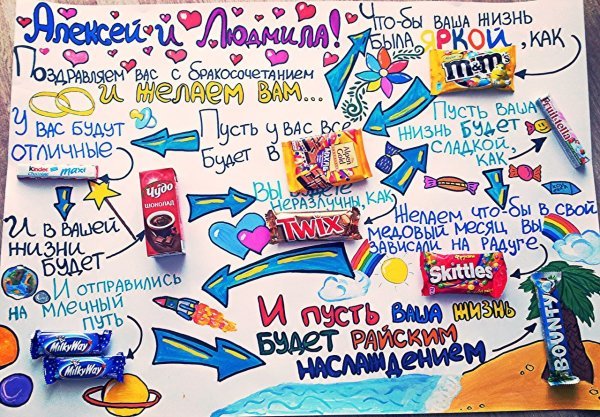 Алексей и Людмила!
Поздравляем вас с бракосочетанием
и желаем вам...
Что-бы ваша жизнь
была яркой, как
m&m's
Пусть ваша
жизнь будет
сладкой,
как
Fruittella
Пусть у вас все
будет в
Alpen
Gold
У вас будут
отличные
Kinder
maxi
Чудо
шоколад
И в вашей
жизни
будет
Вы
неразлучны, как
TWIX
Желаем что-бы в свой
медовый месяц вы
зависали на радуге
Skittles
И отправились
на млечный
путь
MilkyWay
MilkyWay
И пусть ваша жизнь
будет райским
наслаждением
BOUNTY